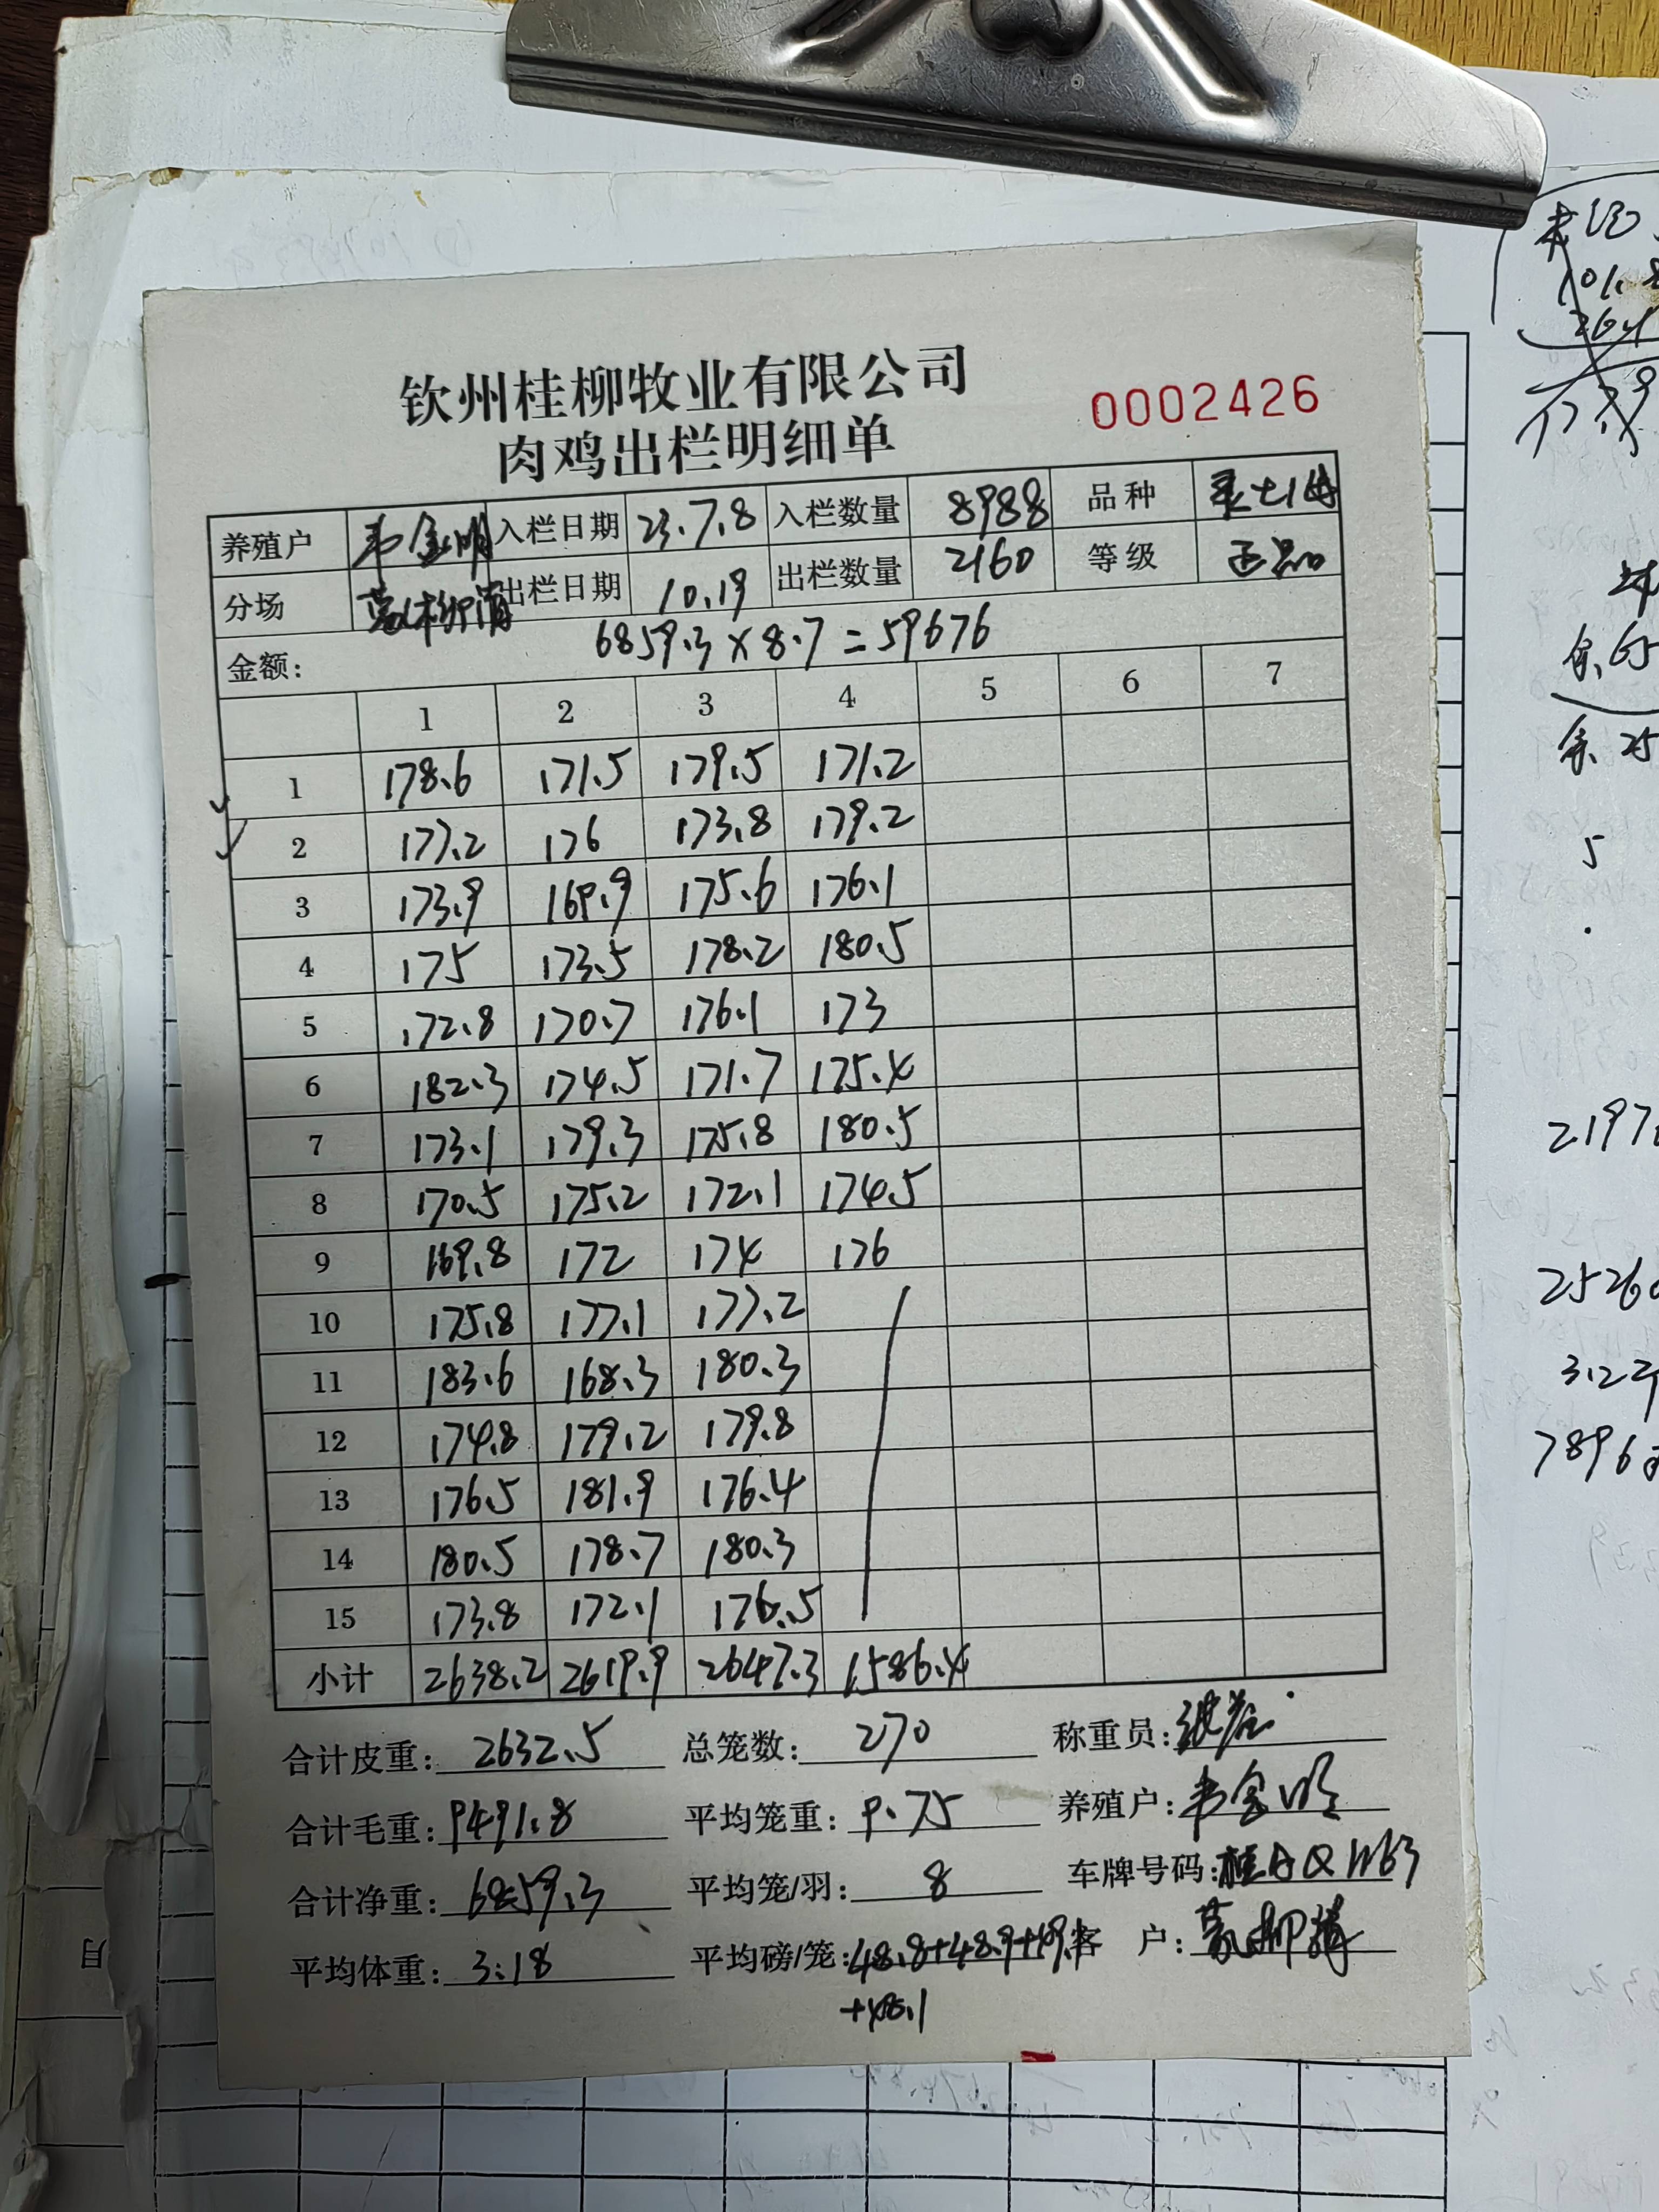 钦州桂柳牧业有限公司
肉鸡出栏明细单
0002426
养殖户 韦金明 入栏日期 23.7.8 入栏数量 8988 品种
分场 出栏日期 10.19 出栏数量 2160 等级 正品
金额: 6859.3×8.7=59676
1 2 3 4 5 6 7
1 178.6 171.5 179.5 171.2
2 177.2 176 173.8 179.2
3 173.9 169.9 175.6 176.1
4 175 173.5 178.2 180.5
5 172.8 170.7 176.1 173
6 182.3 174.5 171.7 175.4
7 173.1 179.3 175.8 180.5
8 170.5 175.2 172.1 174.5
9 169.8 172 174 176
10 175.8 177.1 177.2
11 183.6 168.3 180.3
12 174.8 179.2 179.8
13 176.5 181.9 176.4
14 180.5 178.7 180.3
15 173.8 172.1 176.5
小计 2638.2 2619.9 2647.3 1586.4
合计皮重: 2632.5 总笼数: 270 称重员:
合计毛重: 9491.8 平均笼重: 9.75 养殖户: 韦金明
合计净重: 6859.3 平均笼/羽: 8 车牌号码:
平均体重: 3.18 平均磅/笼: 48.8+48.9+49.1 客 户:
+48.1
5
2197
2526
3.22
7896
月